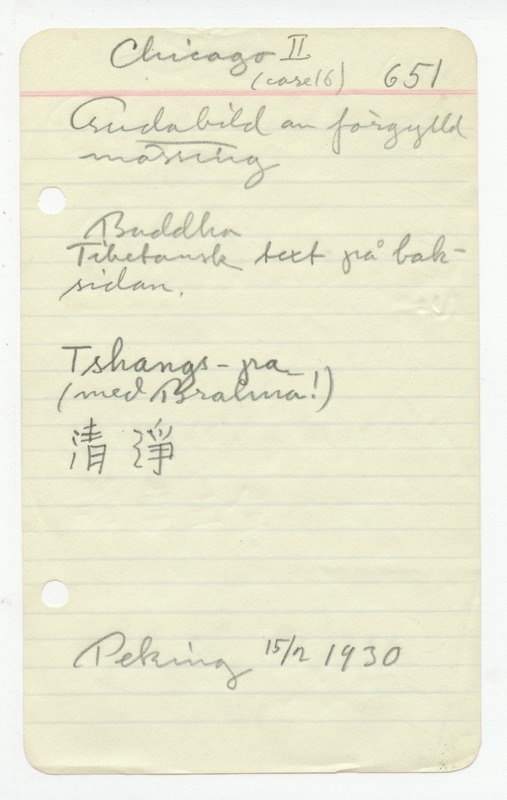 Chicago II
(case 16) 651
Gudabild av förgylld
mässing
Buddha
Tibetansk text på bak-
sidan.
Tshangs-pa
(med Brahma!)
清淨
Peking 15/2 1930